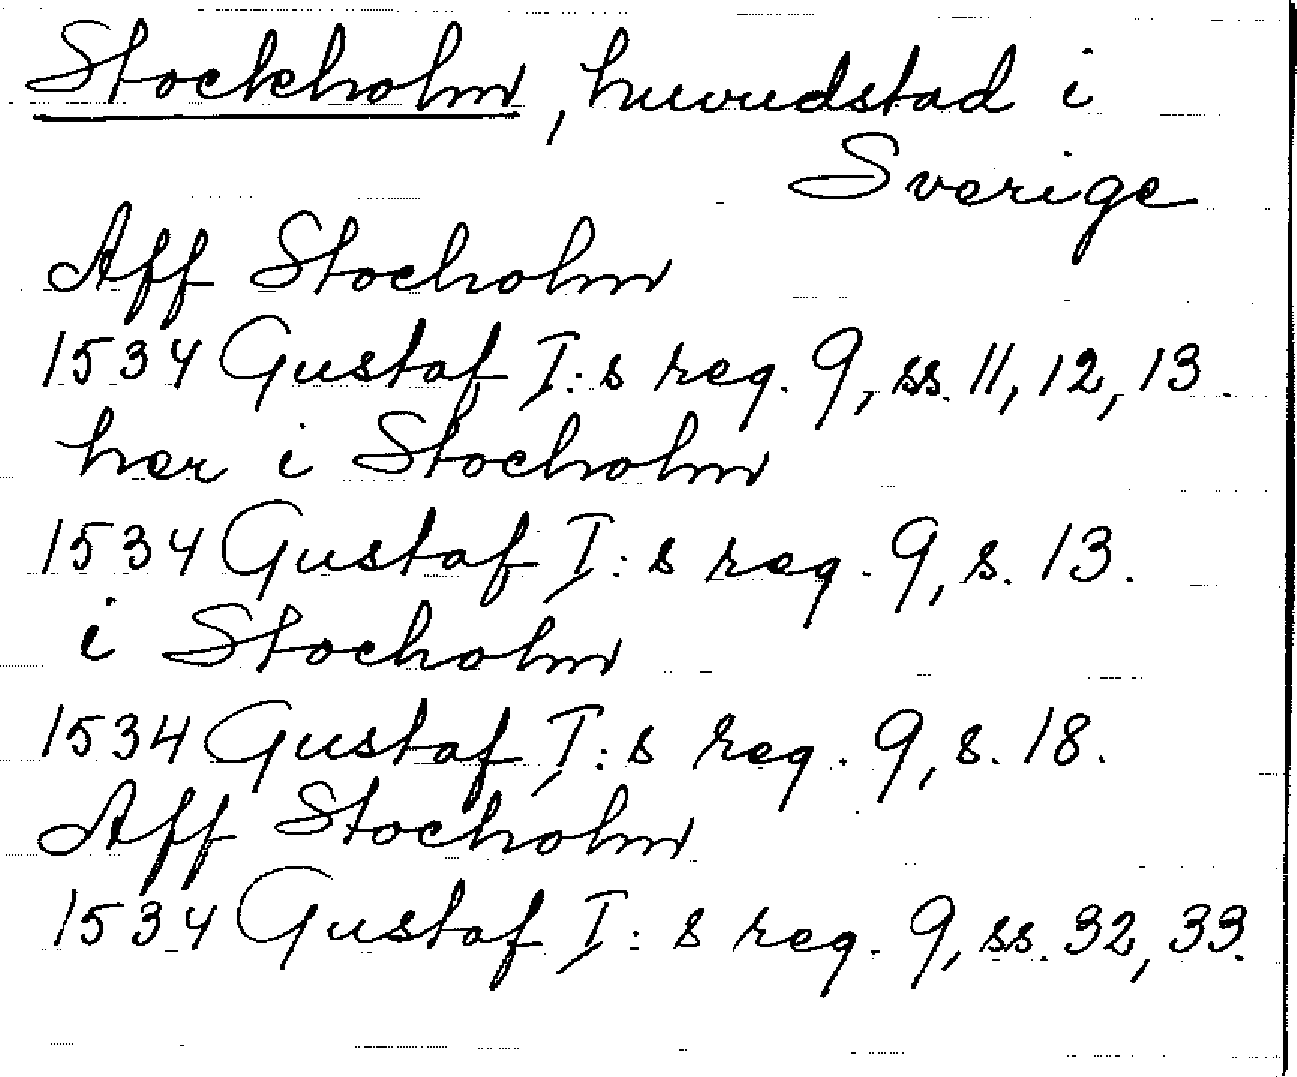 Stockholm, huvudstad i
Sverige
Aff Stocholm
1534 Gustaf I:s reg. 9, ss. 11, 12, 13.
hær i Stocholm
1534 Gustaf I:s reg. 9, s. 13.
i Stocholm
1534 Gustaf I:s reg. 9, s. 18.
Aff Stocholm
1534 Gustaf I:s reg. 9, ss. 32, 33.